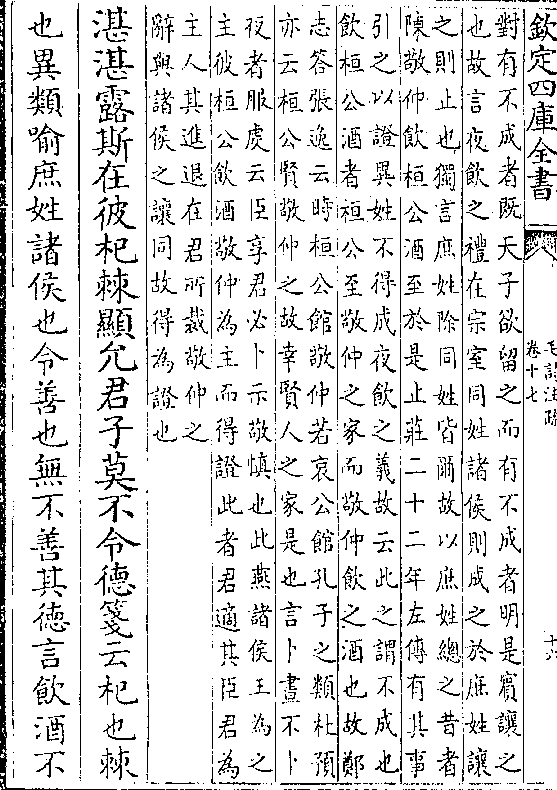 欽定四庫全書
毛詩注疏
卷十七
十六
對有不成者既天子欲留之而有不成者明是賓讓之
也故言夜飲之禮在宗室同姓諸侯則成之於庶姓讓
之則止也獨言庶姓除同姓皆爾故以庶姓總之昔者
陳敬仲飲桓公酒至於是止莊二十二年左傳有其事
引之以證異姓不得成夜飲之義故云此之謂不成也
飲桓公酒者桓公至敬仲之家而敬仲飲之酒也故鄭
志答張逸云時桓公館敬仲若哀公館孔子之類杜預
亦云桓公賢敬仲之故幸賢人之家是也言卜晝不卜
夜者服虔云臣享君必卜示敬慎也此燕諸侯王為之
主彼桓公飲酒敬仲為主而得證此者君適其臣君為
主人其進退在君所裁敬仲之
辭與諸侯之讓同故得為證也
湛湛露斯在彼杞棘顯允君子莫不令德箋云杞也棘
也異類喻庶姓諸侯也令善也無不善其徳言飲酒不